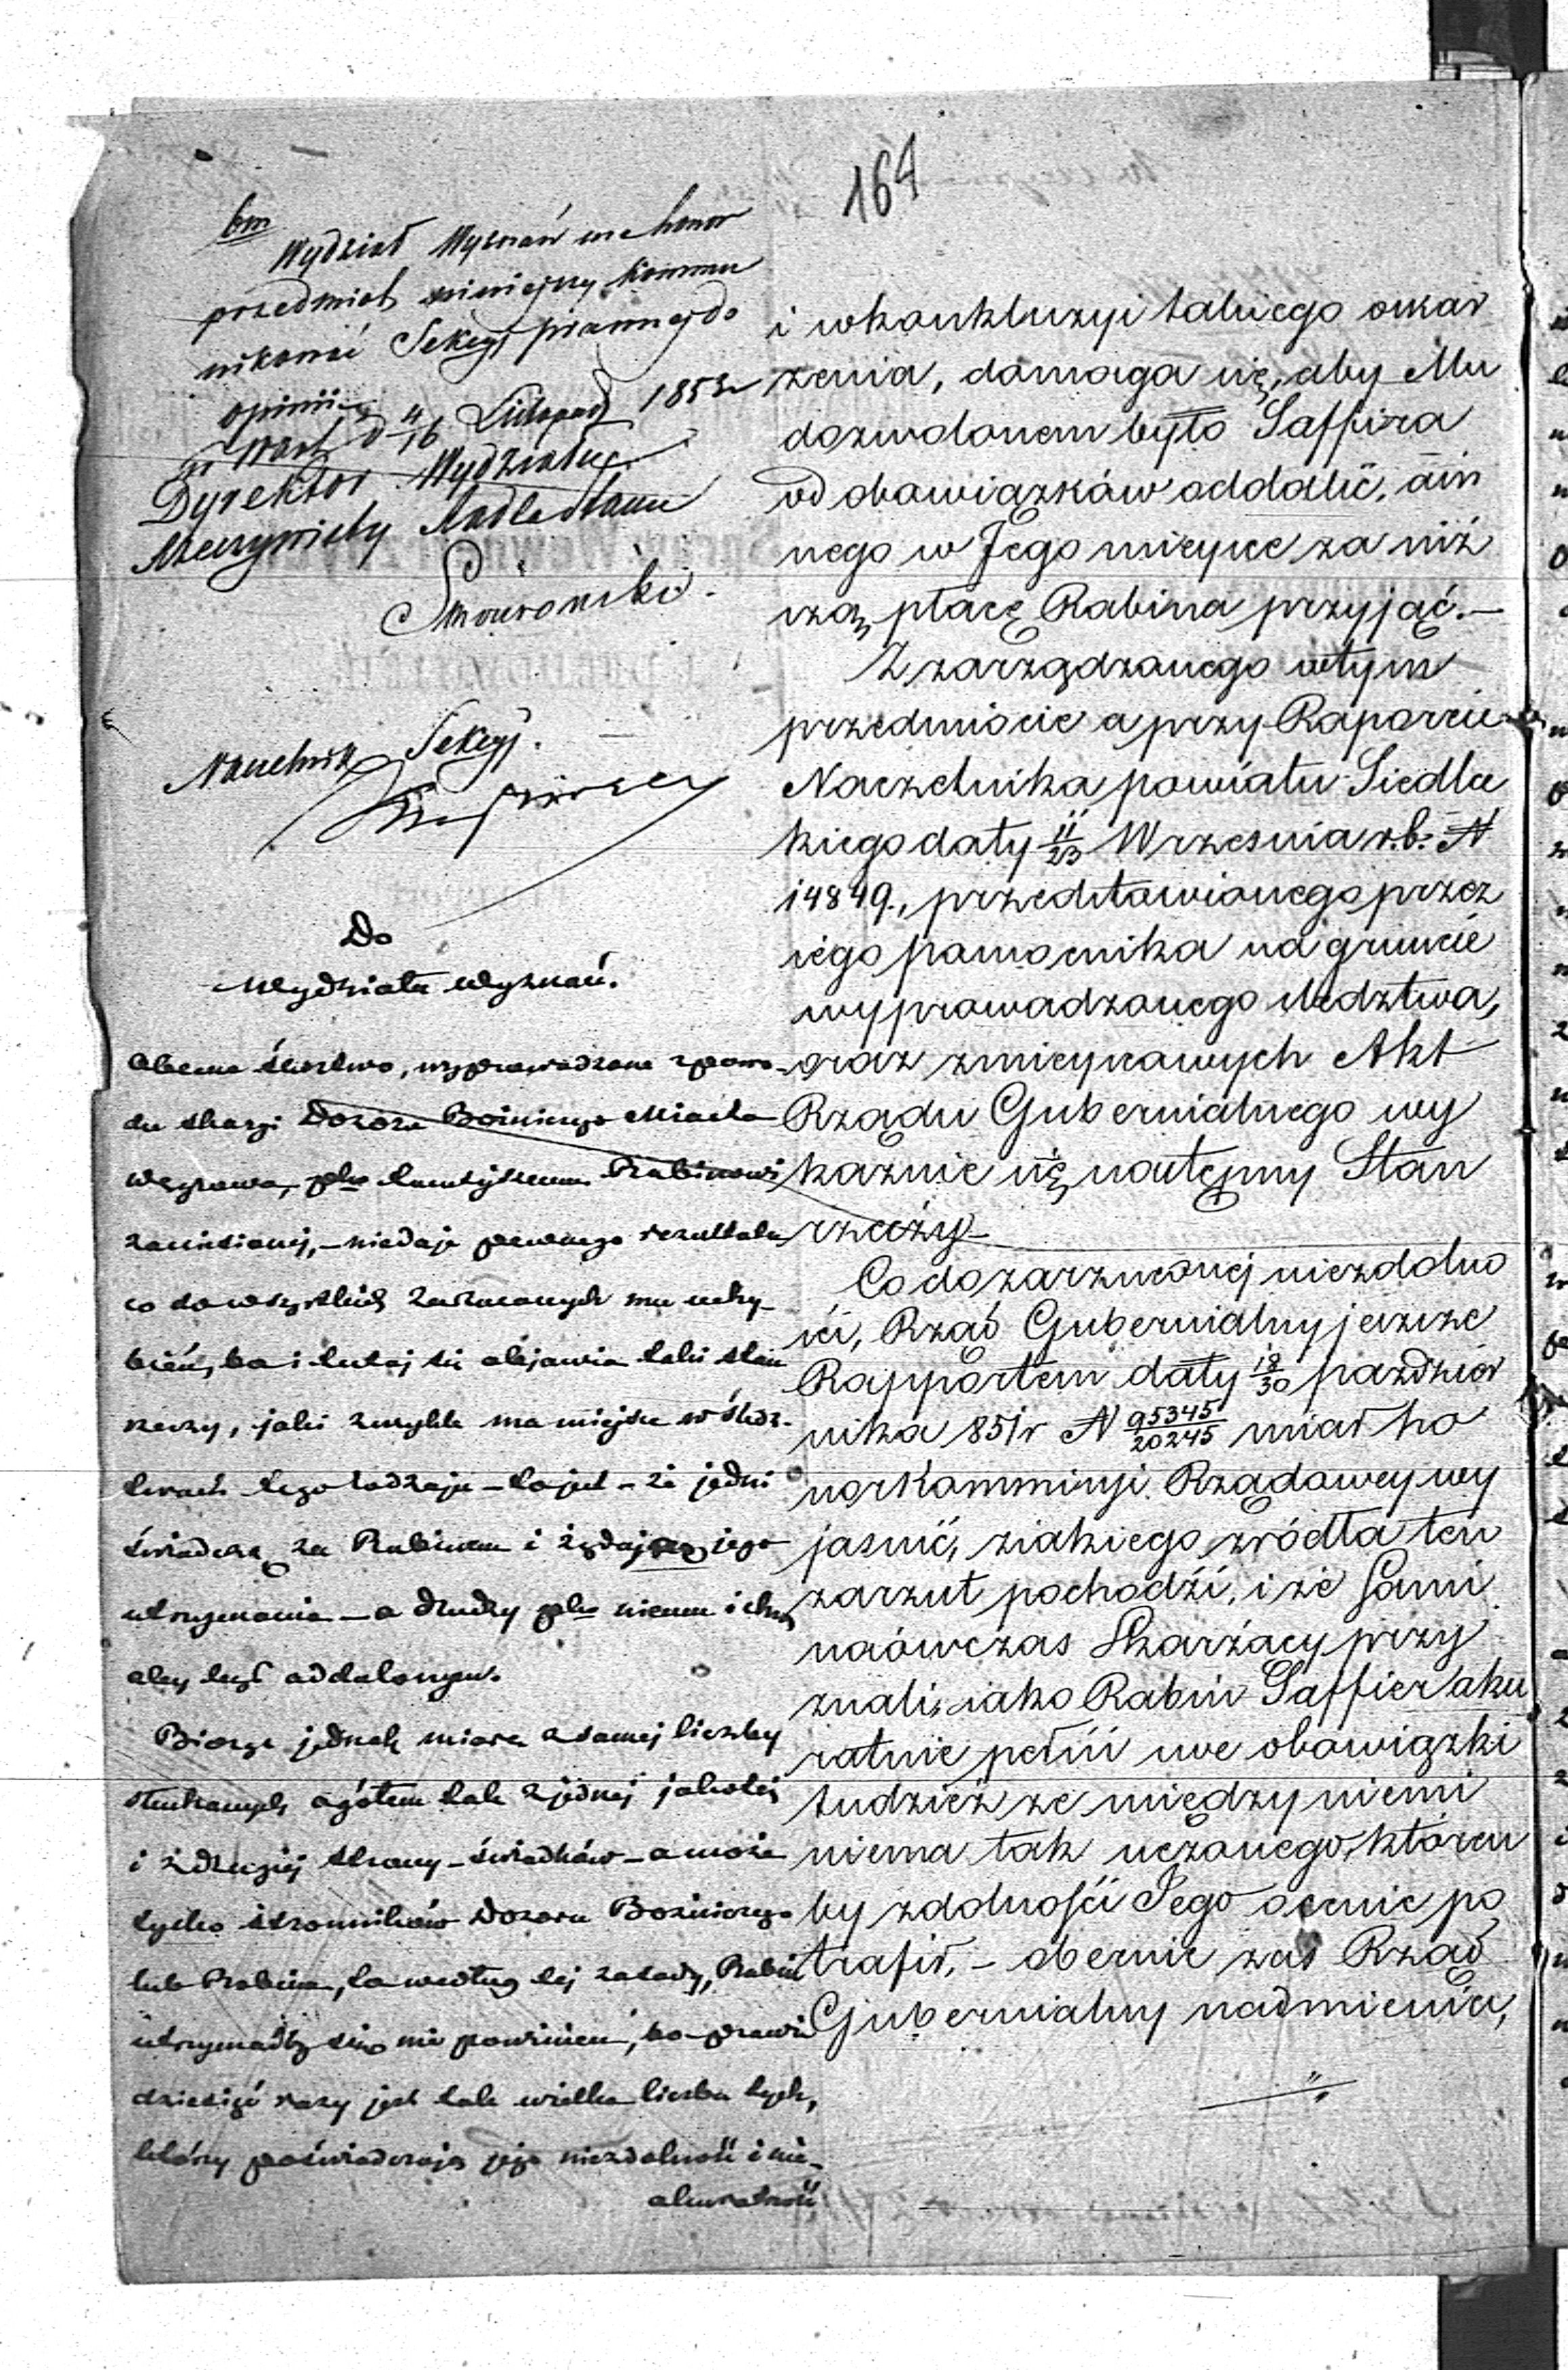 164
bm
Wydział Wyznań ma honor
przedmiot niniejszy kommu
nikować Sekcyi prawnej do
opinii
w Warsz. d 4/16 Listopad 1852
Dyrektor Wydziału
Rzeczywisty Radca Stanu
Naczelnik Sekcyi.
Do
Wydziału Wyznań.
Obecne śledztwo, wyprowadzone z powo-
du skargi Dozoru Bożniczego Miasta
Węgrowa, pko tamtejszemu Rabinowi
zaniesionej, – niedaje pewnego rezultatu
co do wszystkich zarzucanych mu uchy-
bień, bo i tutaj się objawia taki stan
rzeczy, jaki zwykle ma miejsce w śledz-
twach tego rodzaju – to jest – że jedni
świadczą za Rabinem i żądają jego
utrzymania – a drudzy pko niemu i chcą
aby był oddalonym.
Biorąc jednak miarę z samej liczby
słuchanych ogółem tak z jednej jakoteż
i z drugiej strony – świadków – a może
tylko stronników Dozoru Bożniczego
lub Rabina, to według tej zasady, Rabin
utrzymaćby się nie powinien, bo prawie
dziesięć razy jest tak wielka liczba tych,
którzy poświadczają jego niezdolność i nie-
akuratność
i w konkluzyi takiego oskar
żenia, domaga się, aby Mu
dozwolonem było Saffira
od obowiązków oddalić, a in
nego w Jego miejsce za niż
szą płacę Rabina przyjąć. –
Z zarządzonego w tym
przedmiocie a przy Raporcie
Naczelnika powiatu Siedlec
kiego daty 11/23 Września r.b. N
14849., przedstawionego przez
jego pomocnika na gruncie
wyprowadzonego śledztwa,
oraz z miejscowych Akt
Rządu Gubernialnego wy
kaznie się następny Stan
rzeczy –
Co do zarzuconej niezdolno
ści, Rząd Gubernialny jeszcze
Rapportem daty 18/30 paździer
nika 851r N 95345/20245 miał ho
nor Kommissyi Rządowey wy
jaśnić, z jakiego źródła ten
zarzut pochodzi, i że sami
naówczas Skarżący przy
znali, jako Rabin Saffier aku
ratnie pełni swe obowiązki
tudzież że między niemi
niema tak uczonego, któren
by zdolności Jego ocenić po
trafił, – obecnie zaś Rząd
Gubernialny nadmienia,